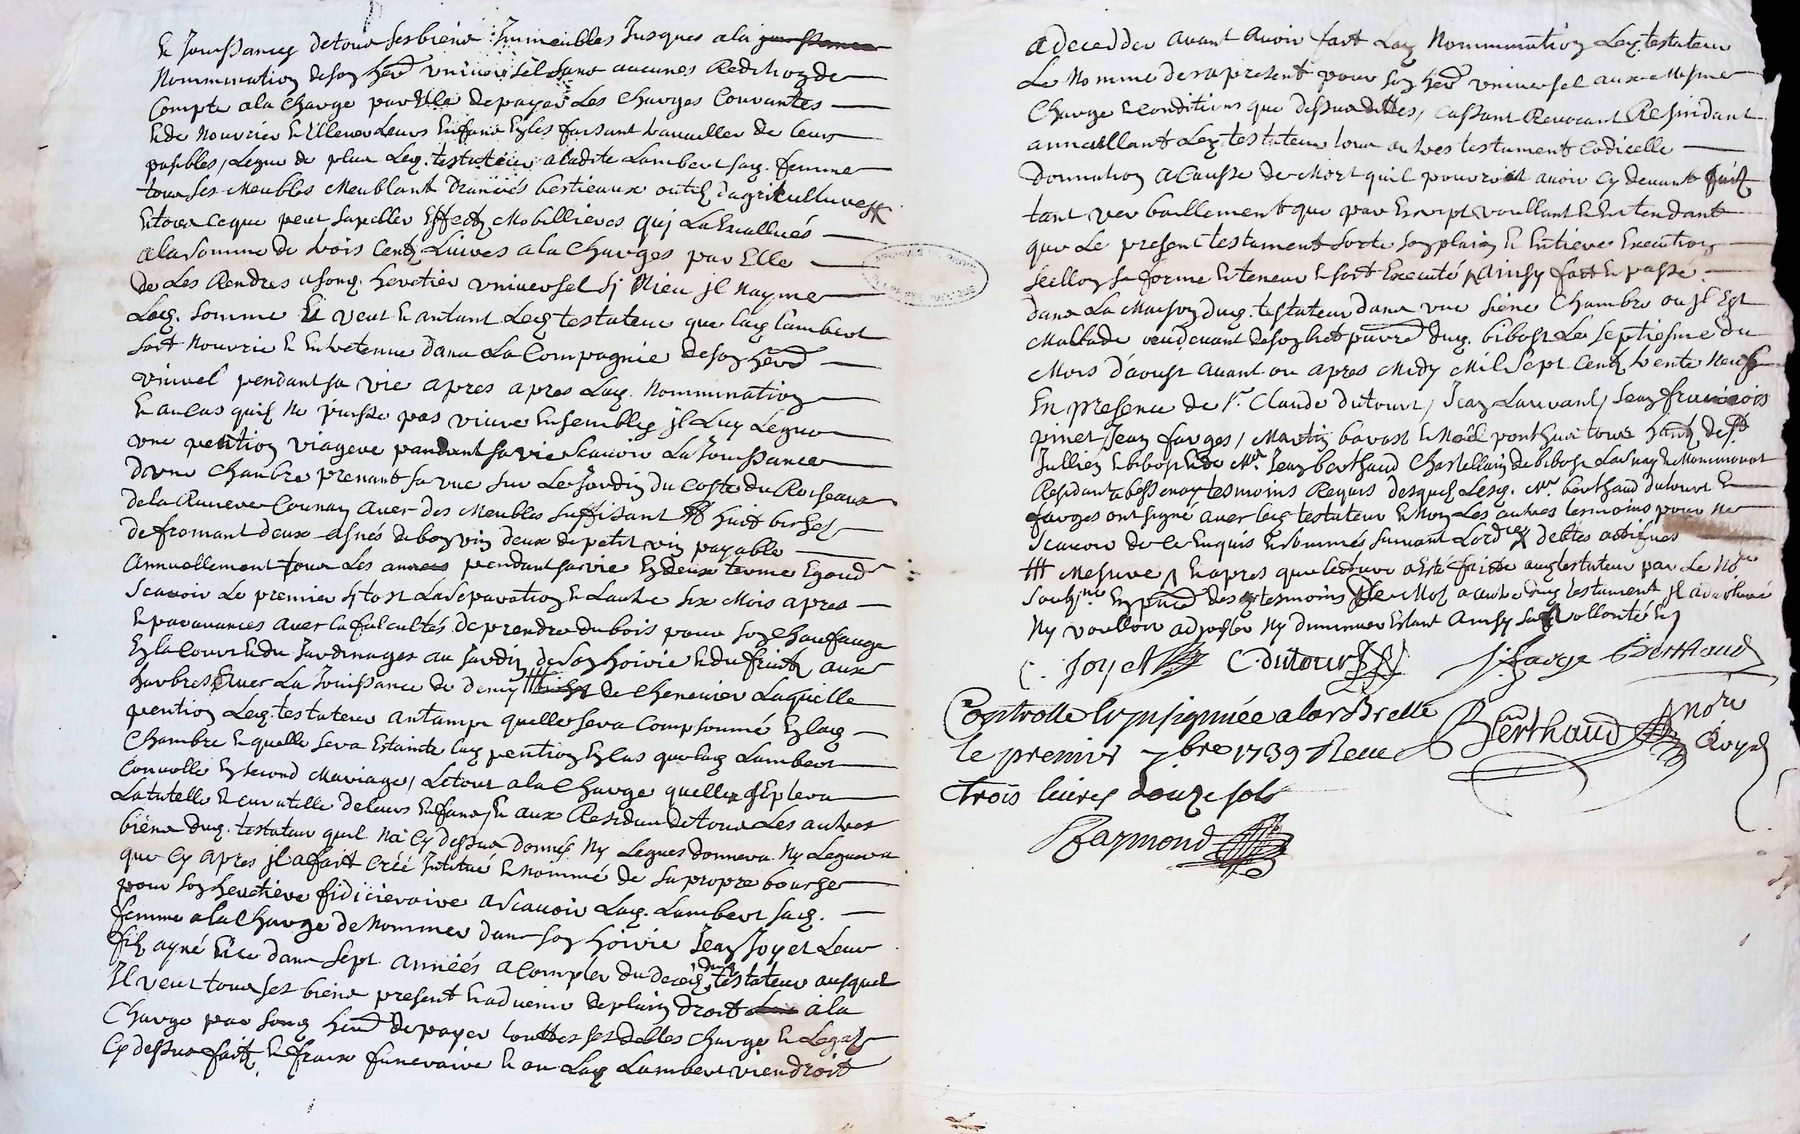 et Jouissances de tous ses biens Immeubles Jusques a la
Nommination de son herr universel sans aucunes Reditions de
Compte a la charge par Elle de payer les Charges Courantes
et de Nourrir et Ellever leurs Enfans En les faisant travailler de leurs
possibles, Legue de plus Led. testateur a ladite Lambert sad. femme
tous ses Meubles Meublant Danrées bestieaux outils d'agriculture
et tout ce que peut sapeller Effects Mobillieres quj La Evallués
a la somme de trois Cents Livres a la Charges par Elle
de Les Rendres a sond. heretier universel sj Mieu jl Nayme
Lad. somme Et veut et antant Led testateur que lad Lambert
soit Nourrie et Entretenue dans La Compagnie de son herr
univel pendant sa vie apres apres Lad. Nommination
Et au cas quils ne puisse pas vivre Ensembles jl Luy Legue
une pention viagere pandant sa vie scavoir La Jouissance
d'une Chambre prenant sa vue sur Le Jardin du Coste du Ruisseau
de la Couran avec des Meubles suffisant huit biches
de fromant deux asnés de bon vin deux de petit vin payable
Annuellement tous Les années pendant sa vie En deux terme Egaud
scavoir Le premier sj tost La separation et Lautre six Mois apres
Et par avances avec la facultés de prendre du bois pour son Chauffauge
En la Cour et du Jardinages au Jardin de son hoirie et du fruits aux
harbres Avec La Jouissance de demy de Chenevier Laquelle
pention Led. testateur antampt quelle sera Compsommé En lad
Chambre et quelle sera Estainte lad pention En Cas que lad Lambert
Convolle En second Mariage, Le tout a la Charge quelle
La tutelle et curatelle de leurs Enfans, Et aux Residus de tous Les autres
biens dud. testateur quil Na Cy dessus donnés Ny Legues donnera Ny Leguera
que Cy apres jl a fait Créé Jnstitué et Nommé de sa propre bouche
pour son heretiere fidicieraire a scavoir Lad. Lambert sad.
femme a la Charge de Nommer dans son hoirie Jean Joyet Leur
fils ayné Et ce dans sept années a Compter du deces dud testateur ausquel
Il veut tous ses biens present et advenir de plain droit a la
Charge par sond. herr de payer touttes ses debtes Charge et Legats
Cy dessus faits et fraix funeraire et ou Lad Lambert viendroit
a deceddee avant avoir fait Lad Nommination Led testateur
Le Nomme des a present pour son herr universel aux Mesme
Charge et conditions que dessus dittes, Cassant Revocant Resindant
annullant Led. testateur tous autres testament Codicelle
donnation a Causse de Mort quil pouvroit avoir Cy devant faits
tant verballement que par Escript voullant et Entendant
que Le present testament sorte son plain et Entiere Execution
seellon sa forme et teneur et soit Executé, Ainsy fait et passé
dans La Maison dud. testateur dans une siene Chambre ou jl Est
Mallade dud. bibost Le septiesme du
Mois d'aoust avant ou apres Midy Mil sept Cents trente Neuf
En presence de sr. Claude dutour, Jean Lauvant, Jean francois
pinet, Jean farges, Martin bavost et Noël ponthus tous habts de st
Jullien et bibost et de Mr. Jean berthaud Chastellain de bibost
Residant a bessenay tesmoins Requis desquels Lesd. Mr. berthaud dutour et
farges ont signé avec led testateur et Non Les autres tesmoins pour ne
scavoir de ce Enquis et sommés suivant Lordce debtes actifs
Mesure, Et apres que lecture a Esté faitte aud testateur par Le Nore
soubsne En pnce des tesmoins de Mot a autre dud testament jl a declaré
Ny voulloir adjoster Ny diminuer Estant Ainsy sa vollonté
Joyet C. dutour J. farge Berthaud
Controlle Et Jnsignuée a larBrelle
le premier 7bre 1739 Receu Berthaud nore Royal
trois livres douze sols
Raymond